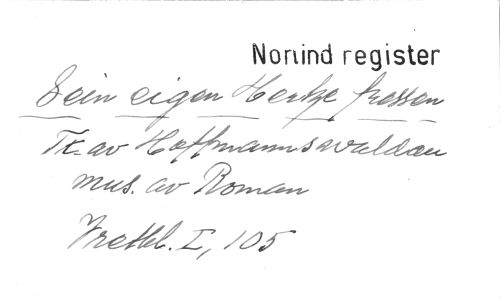 Norlind register
Sein eigen Hertze fressen
Tx. av Hoffmannswaldau
mus. av Roman
Vretbl. I, 105